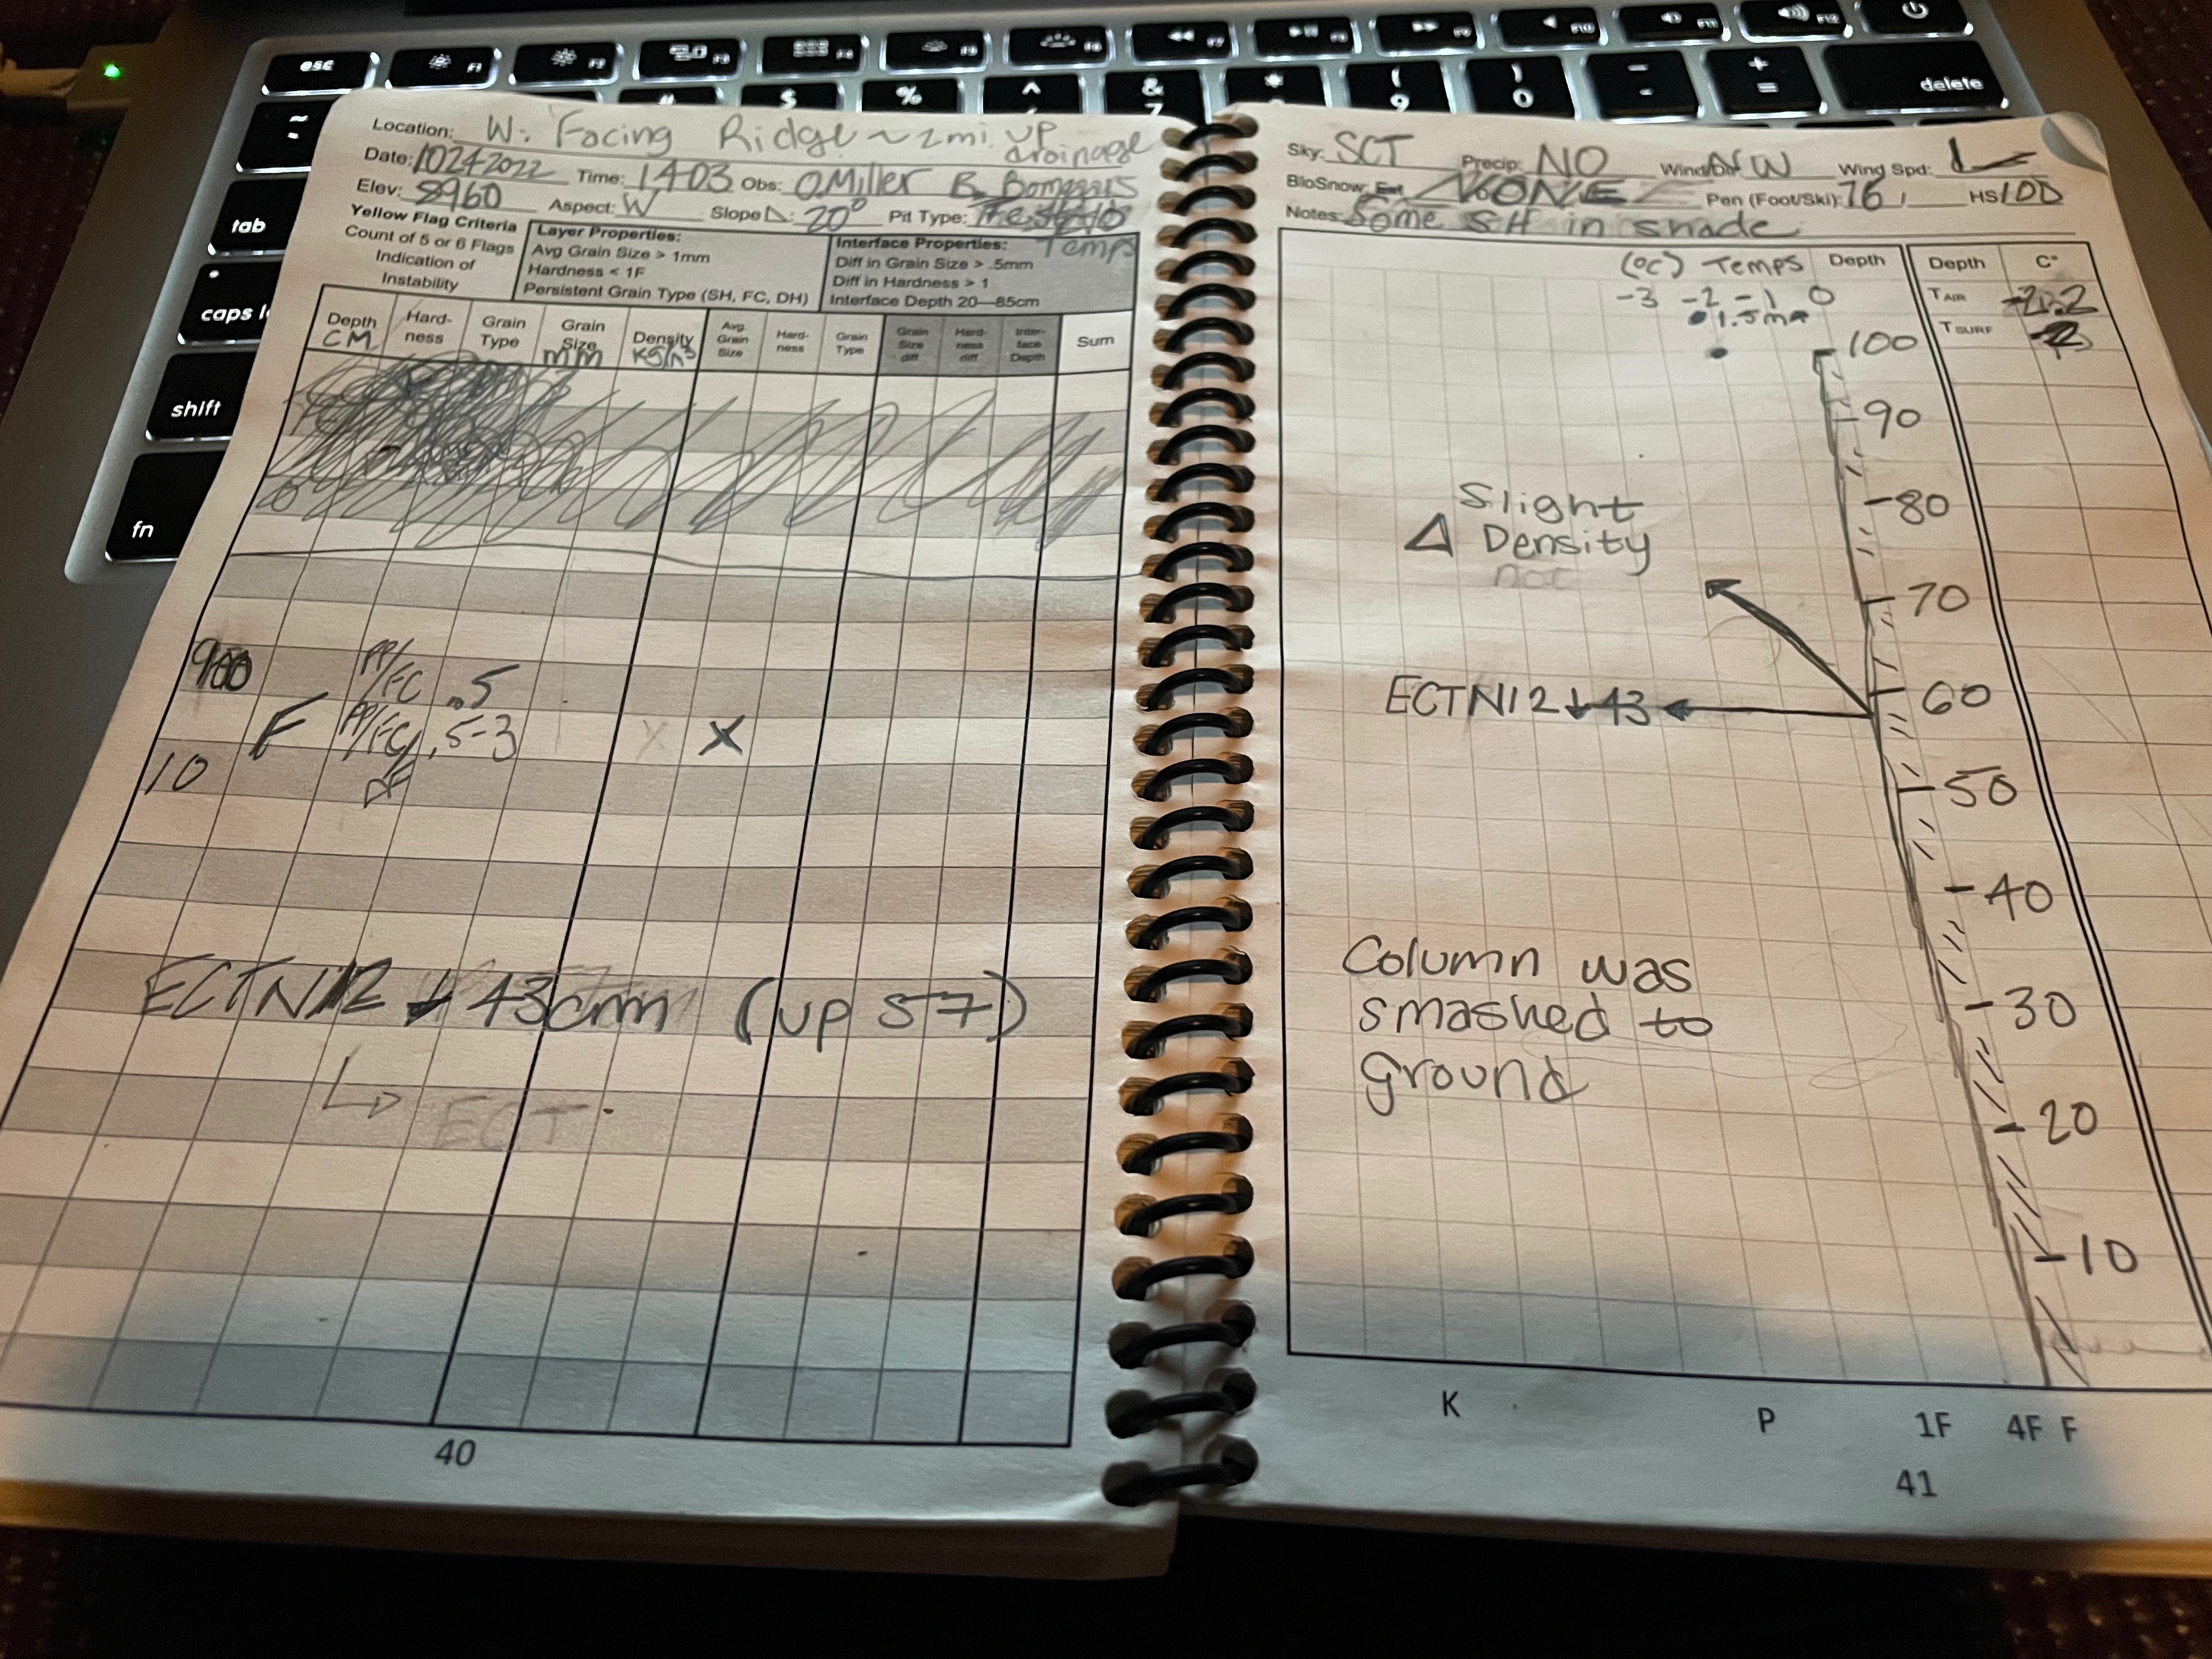 esc F1 F2 F3 F4 F5 F6 F7 F8 F9 F10 F11 F12
~ $ % ^ & 7 * ( 9 ) 0 _ - + = delete
tab
caps l
shift
fn
Location: W. Facing Ridge ~2mi. up drainage
Date: 10242022 Time: 1403 Obs: OMiller B.
Elev: 8960 Aspect: W Slope: 20° Pit Type: Temps
Yellow Flag Criteria
Count of 5 or 6 Flags
Indication of
Instability
Layer Properties:
Avg Grain Size > 1mm
Hardness < 1F
Persistent Grain Type (SH, FC, DH)
Interface Properties:
Diff in Grain Size > .5mm
Diff in Hardness > 1
Interface Depth 20—85cm
Depth CM. Hard-ness Grain Type Grain Size mm Density KG/m³ Avg Grain Size Hard-ness Grain Type Grain Size diff Hard-ness diff Inter-face Depth Sum
PP/FC .5
F PP/FC/DF .5-3 X X
10
ECTN12 ↓ 43cm (up 57)
↳ ECT
40
Sky: SCT Precip: NO Wind Dir: NW Wind Spd: L
BloSnow: Ext NONE Pen (Foot/Ski): 76 / HS 100
Notes: Some SH in shade
(°C) Temps Depth
-3 -2 -1 0
Depth C°
T AIR -2.2
T SURF
100
90
80
Slight
Δ Density
not
70
60
ECTN12↓43
50
40
Column was
smashed to
ground
30
20
10
K P 1F 4F F
41